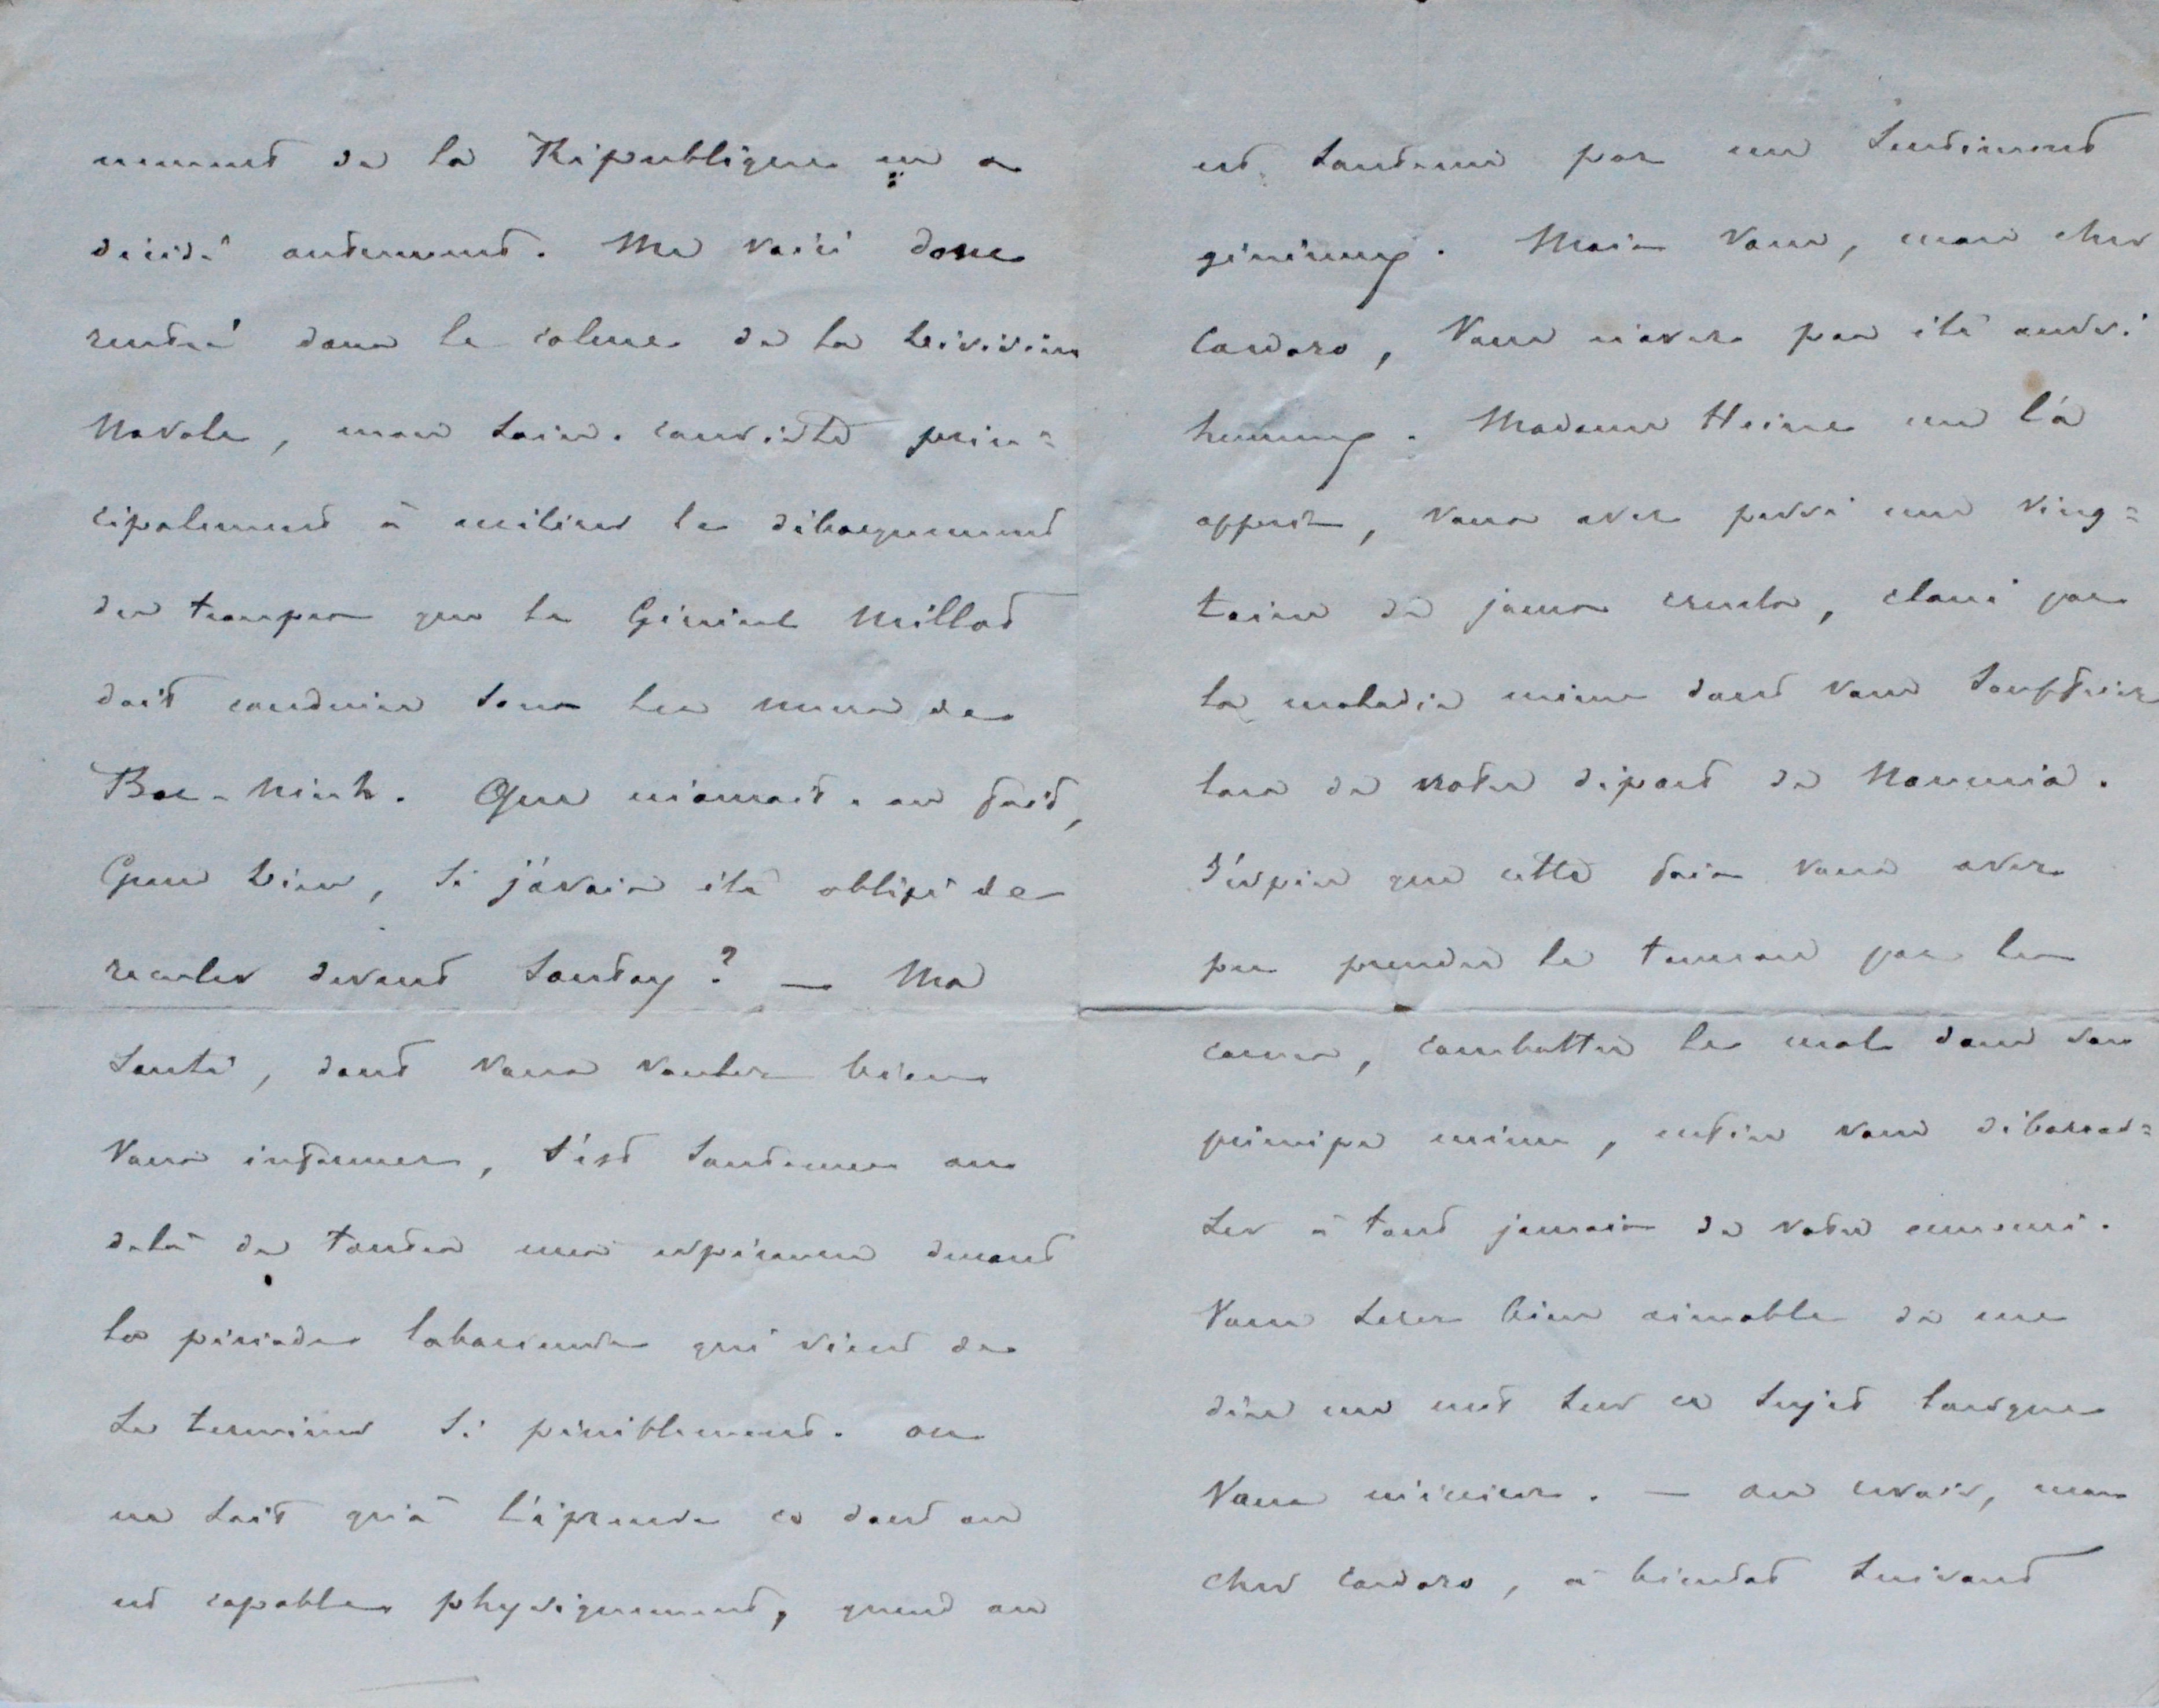 nement de la République en a
décidé autrement. Me voici donc
rentré dans le calme de la Division
Navale, mon soin consiste prin=
cipalement à activer le débarquement
des troupes que le Général Millot
doit conduire sous les murs de
Bac-Ninh. Que n'aurait-on fait,
Grand Dieu, si j'avais été obligé de
reculer devant Sontay? — Ma
santé, dont vous voulez bien
vous informer, s'est soutenue au
delà de toutes mes espérances durant
la période laborieuse qui vient de
se terminer si péniblement. On
ne sait qu'à l'épreuve ce dont on
est capable physiquement, quand on
est soutenu par un sentiment
généreux. Mais vous, mon cher
Cordaro, vous n'avez pas été aussi
heureux. Madame Heine me l'a
appris, vous avez passé une ving=
taine de jours cruels, cloué par
la maladie même dont vous souffriez
lors de votre départ de Nouméa.
J'espère que cette fois vous avez
pu prendre le taureau par les
cornes, combattre le mal dans son
principe même, enfin vous débarras=
ser à tout jamais de votre ennemi.
Vous serez bien aimable de me
dire un mot sur ce sujet lorsque
vous m'écrirez. — Au revoir, mon
cher Cordaro, à bientôt suivant